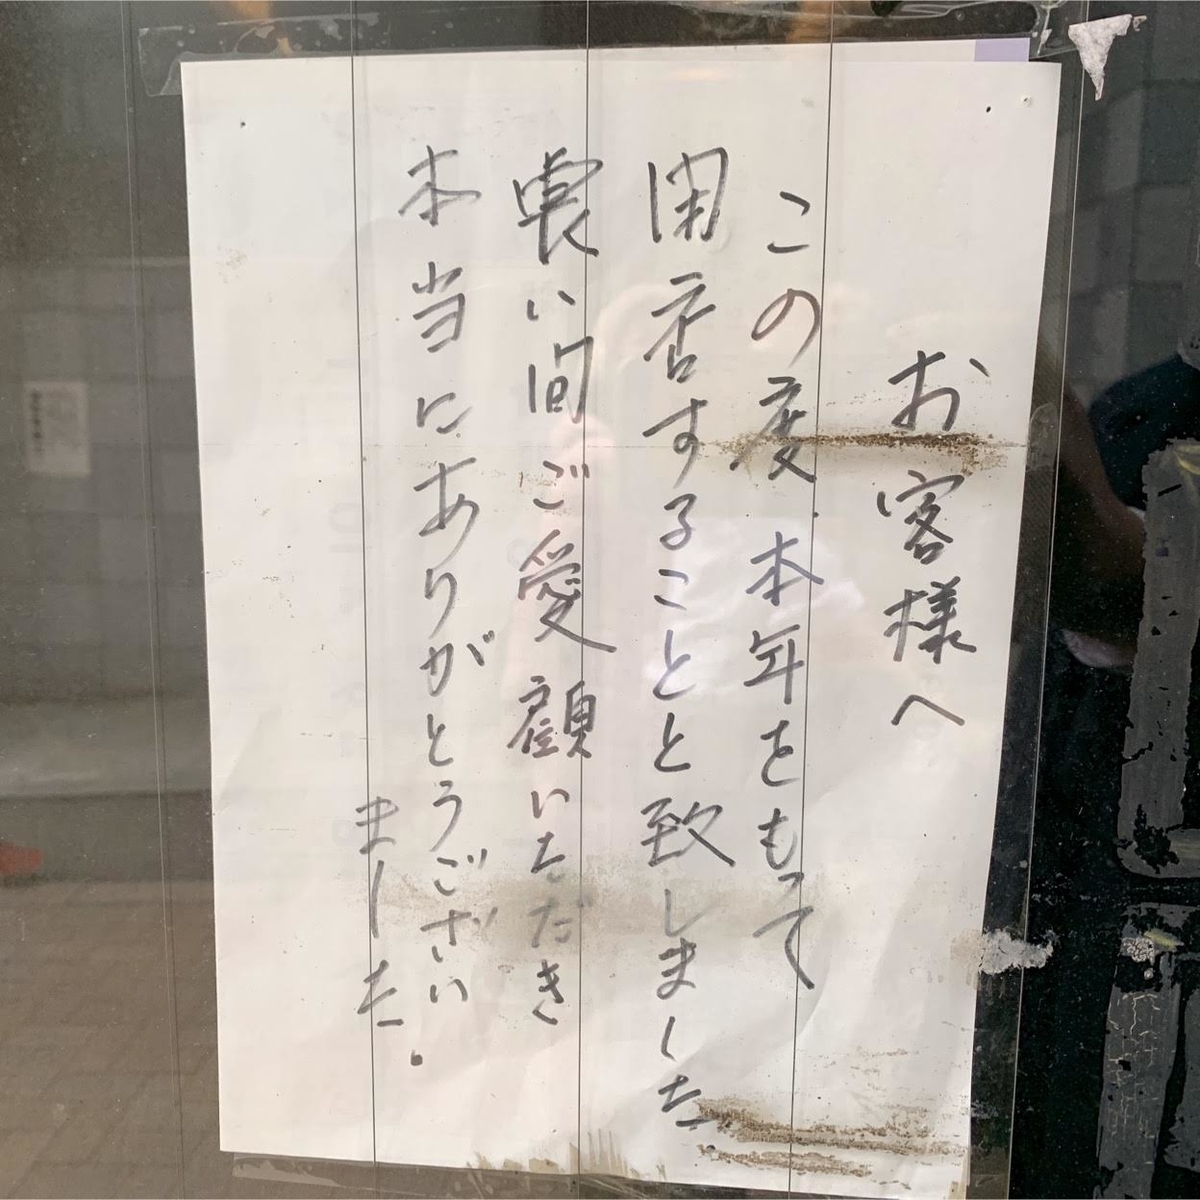 お客様へ
この度、本年をもって
閉店することと致しました
長い間ご愛顧いただき
本当にありがとうござい
ました。